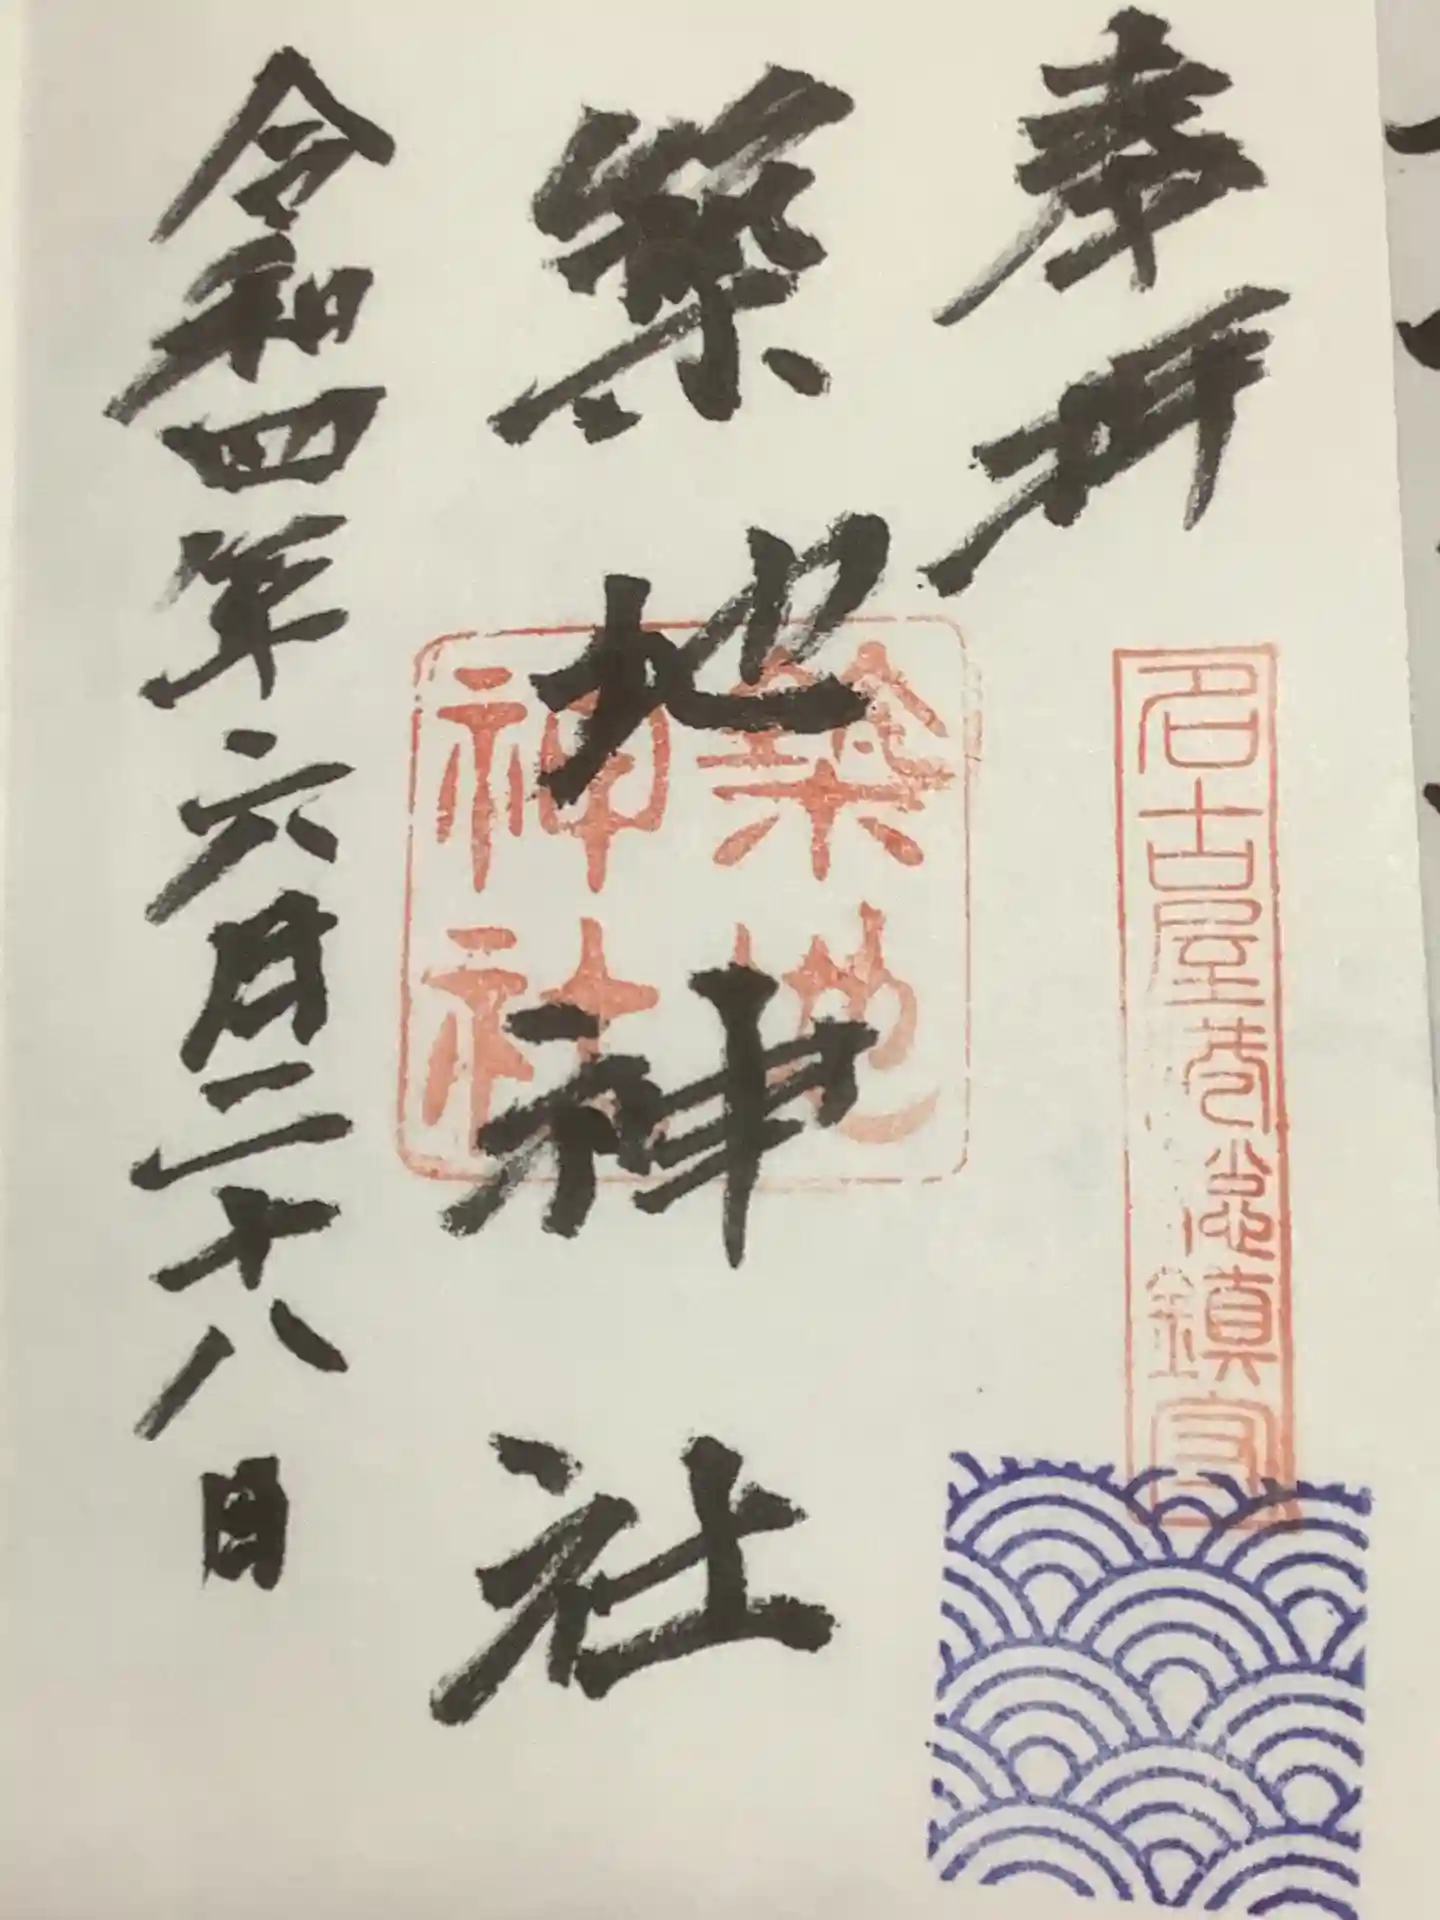 奉拝
名古屋港總鎮守
築地神社
築地
神社
令和四年六月二十八日